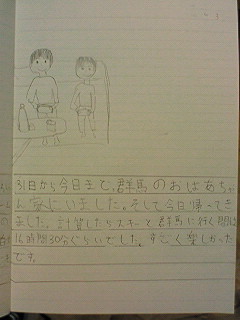 31日から今日まで、群馬のおばあちゃ
ん家にいました。そして今日帰ってき
ました。計算したらスキーと群馬に行く間は
16時間30分ぐらいでした。すごく楽しかった
です。